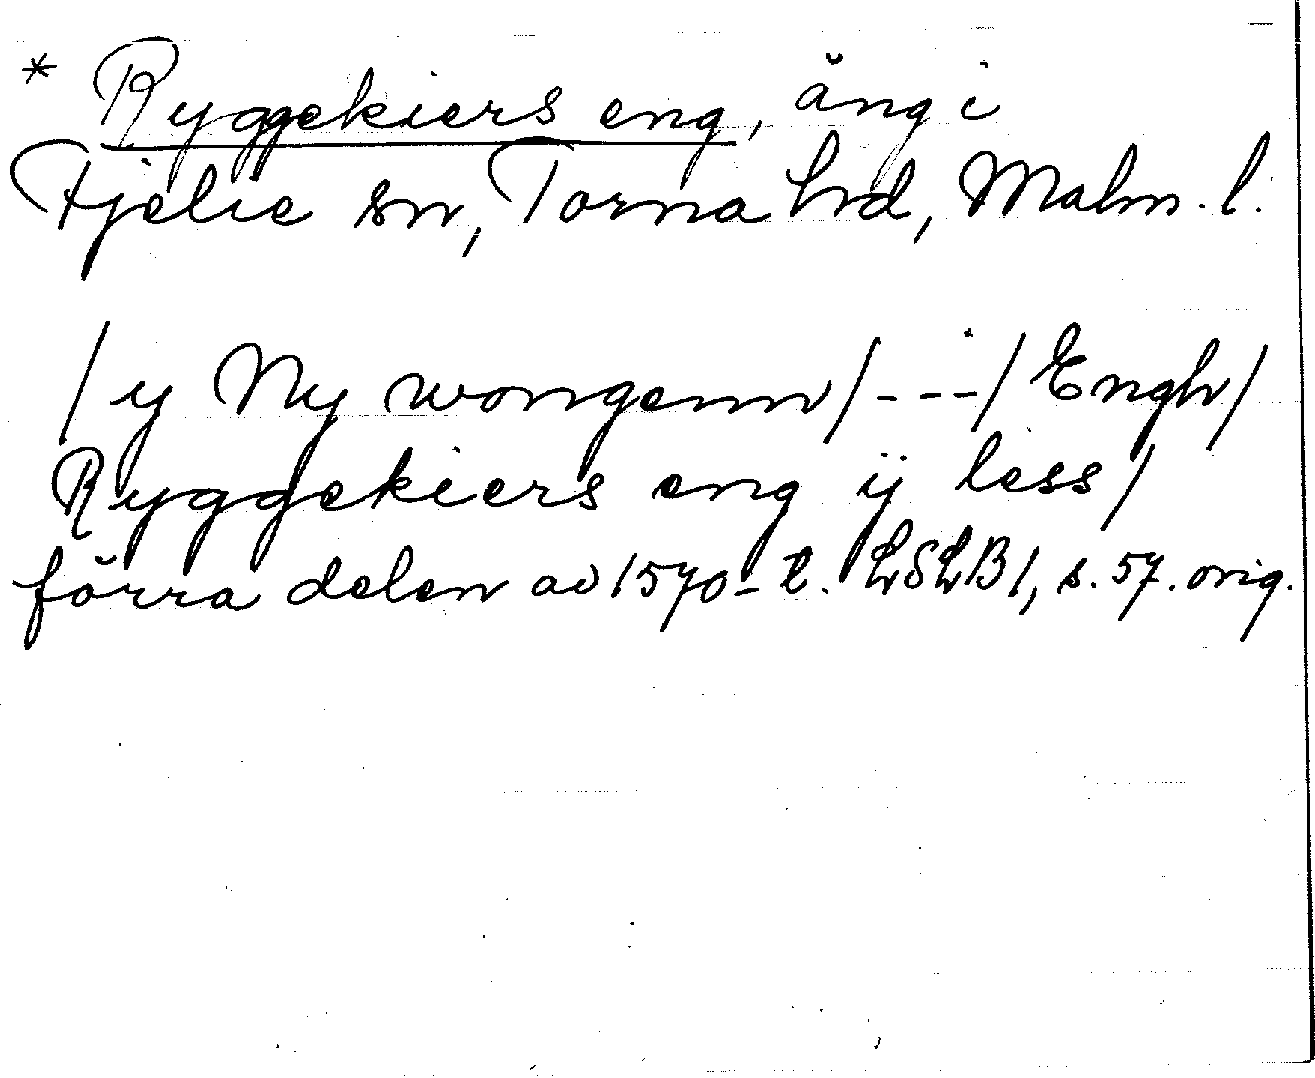 * Ryggekiers eng, äng i
Fjelie sn, Torna hrd, Malm. l.
/ y Ny wongenn / --- / Engh /
Ryggekiers eng ij less /
förra delen av 1570-t. LSLB 1, s. 57. orig.